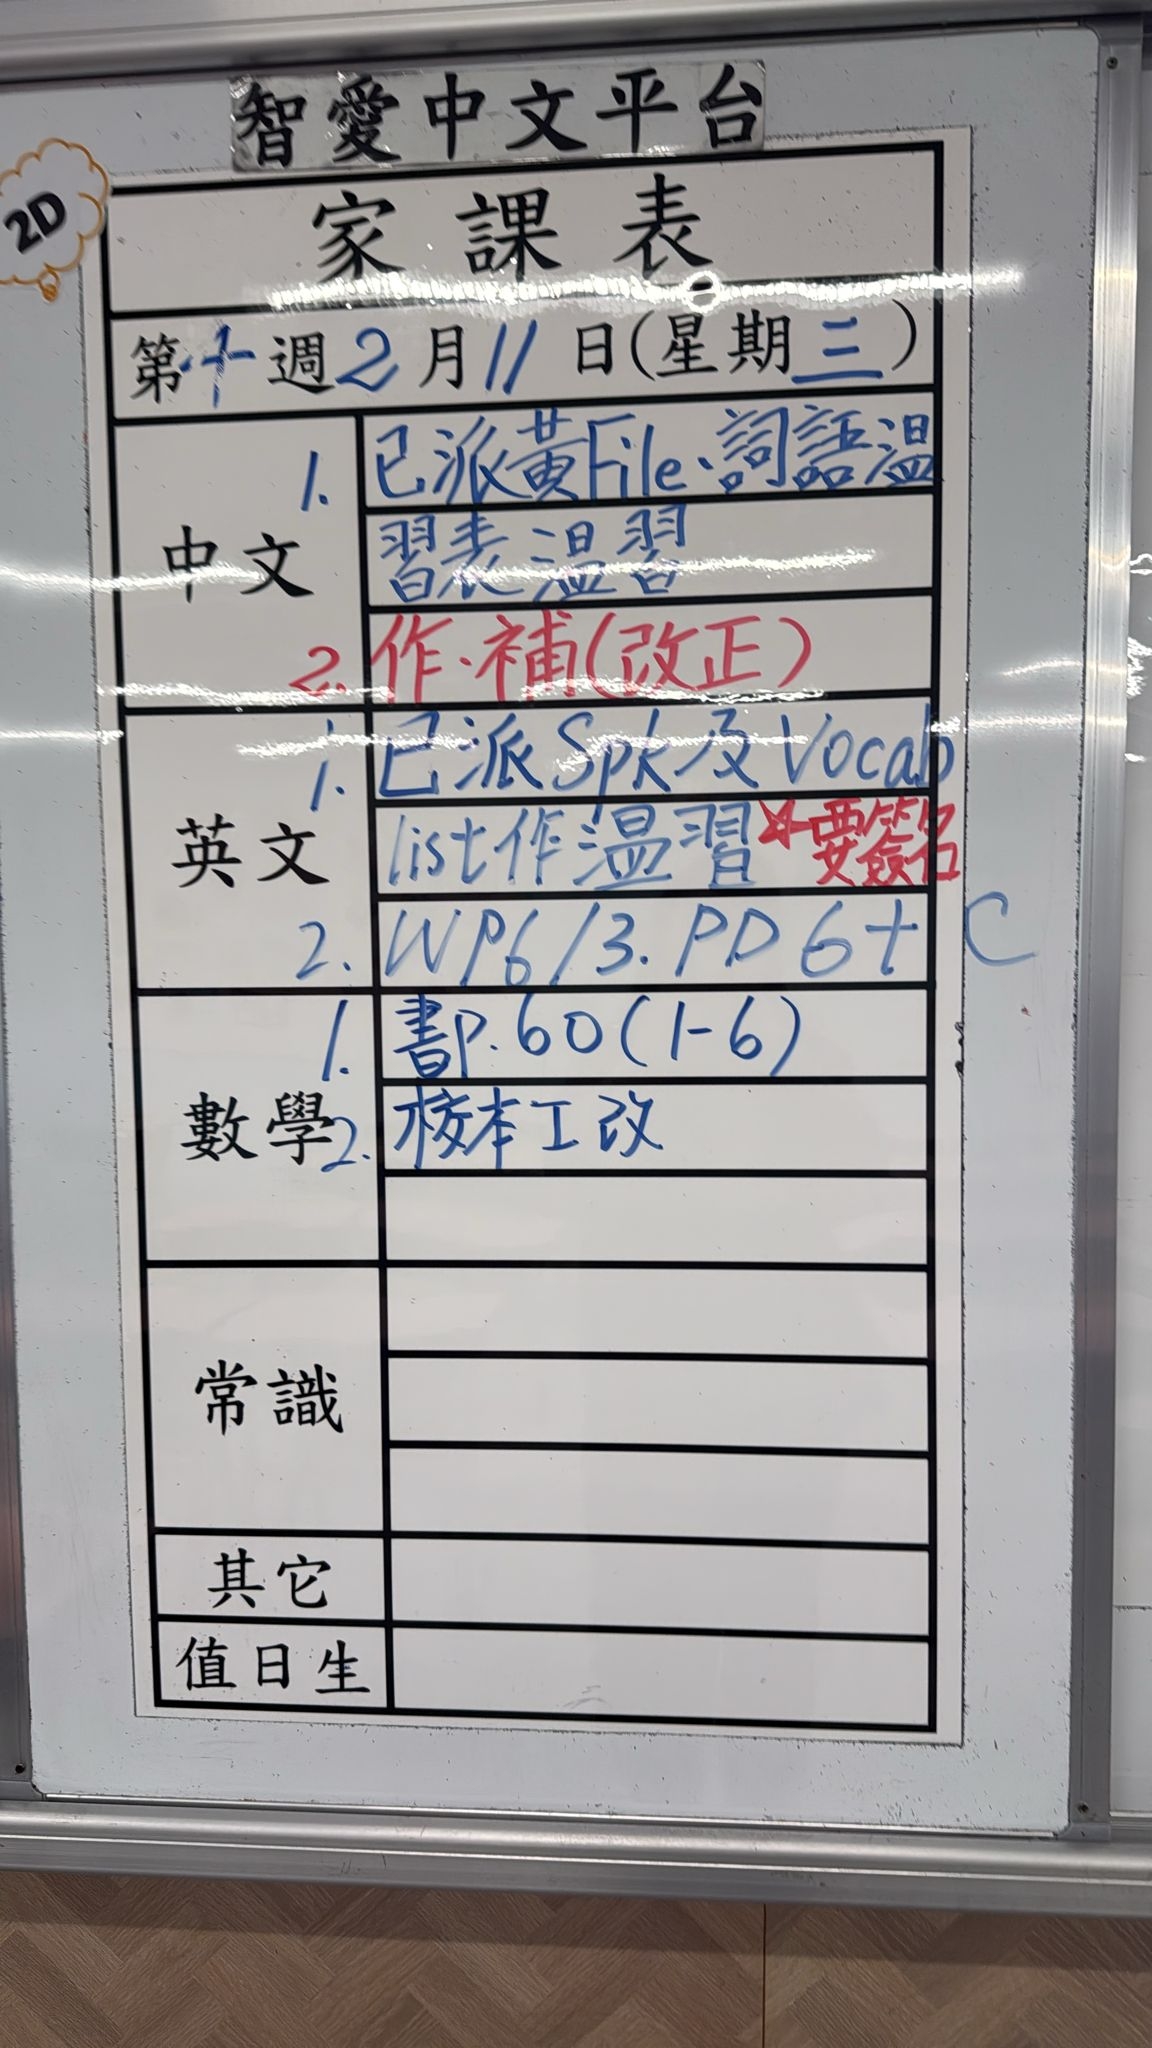 智愛中文平台
2D
家課表
第十週2月11日(星期三)
中文
1. 已派黃File、詞語溫
習表溫習
2. 作.補(改正)
英文
1. 已派Spk及Vocab
list作溫習 *要簽名
2. WP6/3. PD6+C
數學
1. 書P.60(1-6)
2. 校本工改
常識
其它
值日生